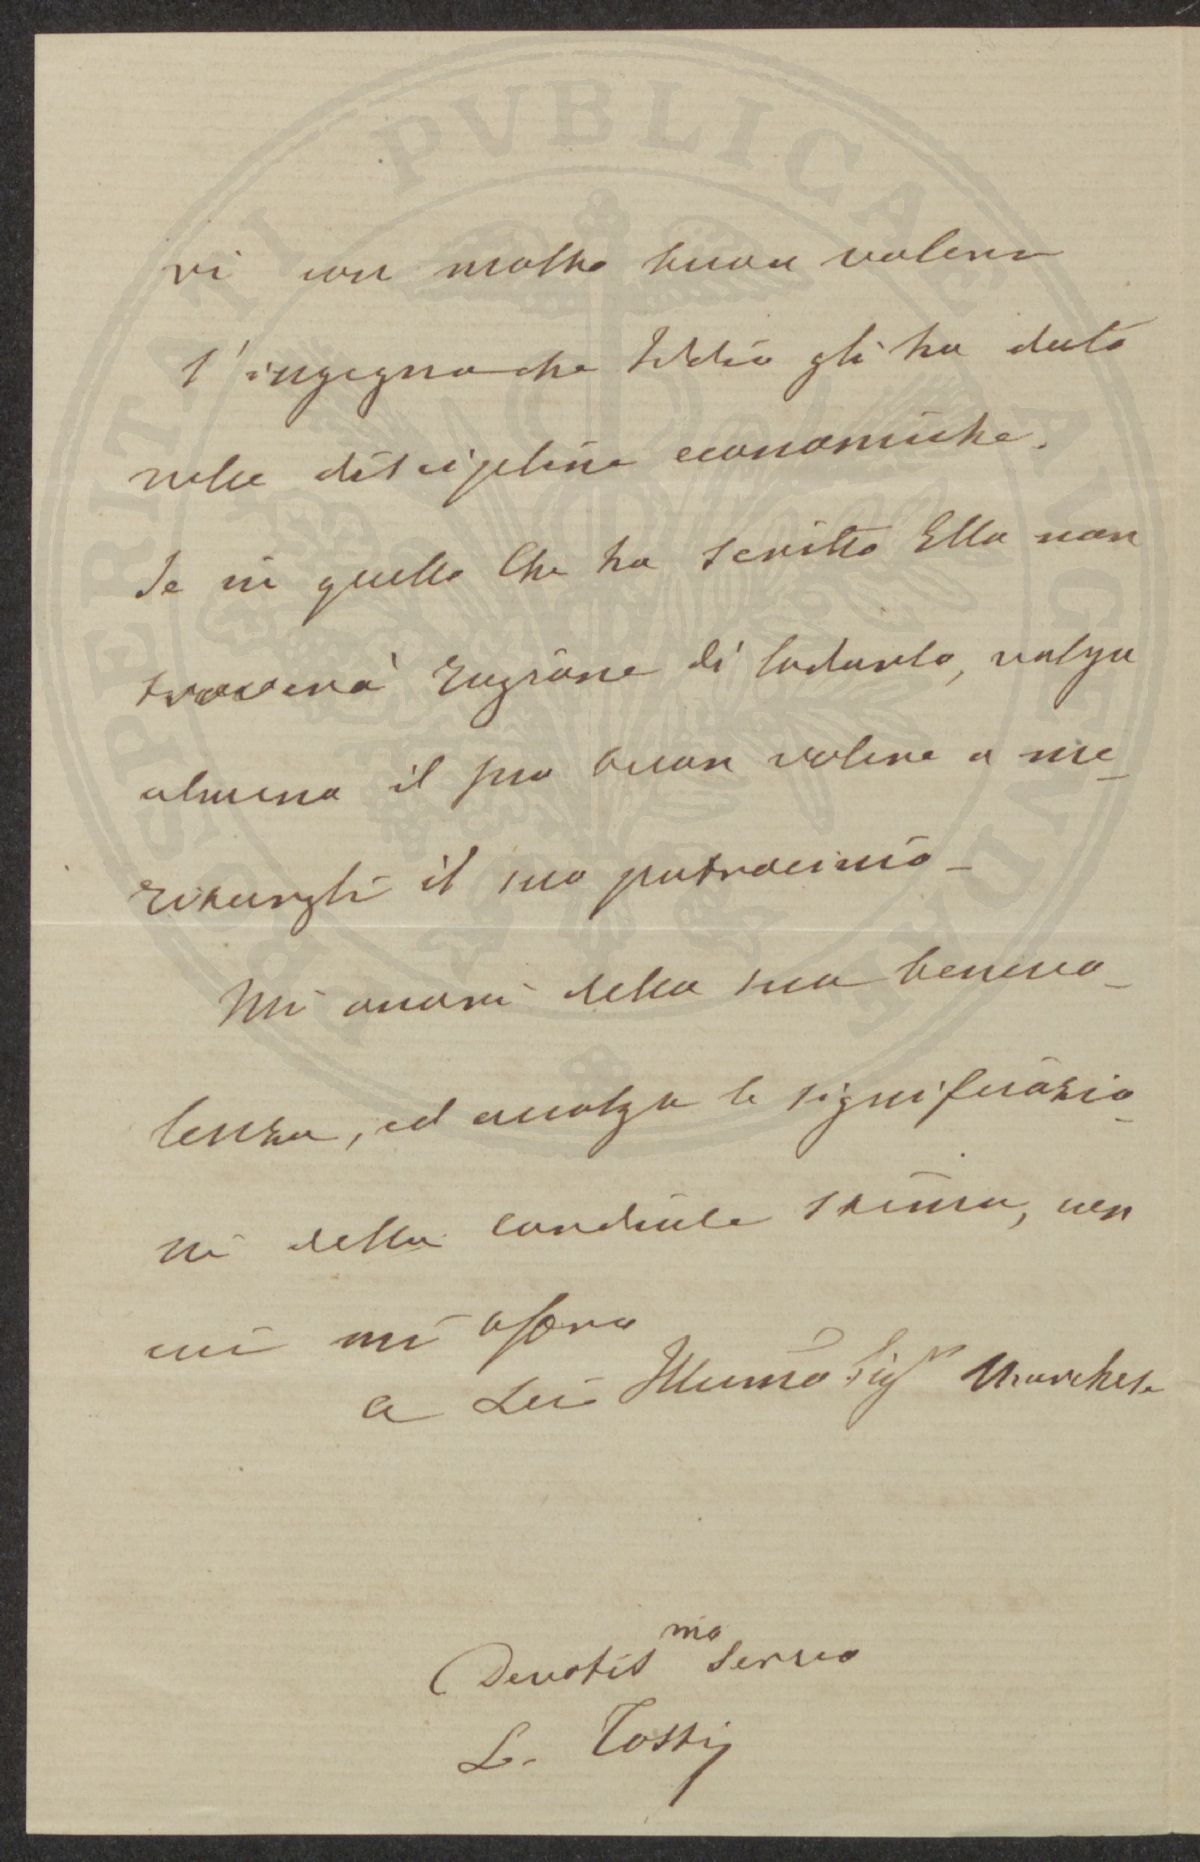 PROSPERITATI PVBLICAE AVGENDAE
vi con molto buon volere
l'ingegno che Iddio gli ha dato
nelle discipline economiche.
Se in quello che ha scritto Ella non
troverà ragione di lodarlo, valga
almeno il suo buon volere a me_
ritargli il suo patrocinio_
Mi onori della sua benevo_
lenza, ed accolga le significazio_
ni della cordiale stima, con
cui mi offro
a Lei Illumo Sigr Marchese
Devotismo Servo
L. Tosti